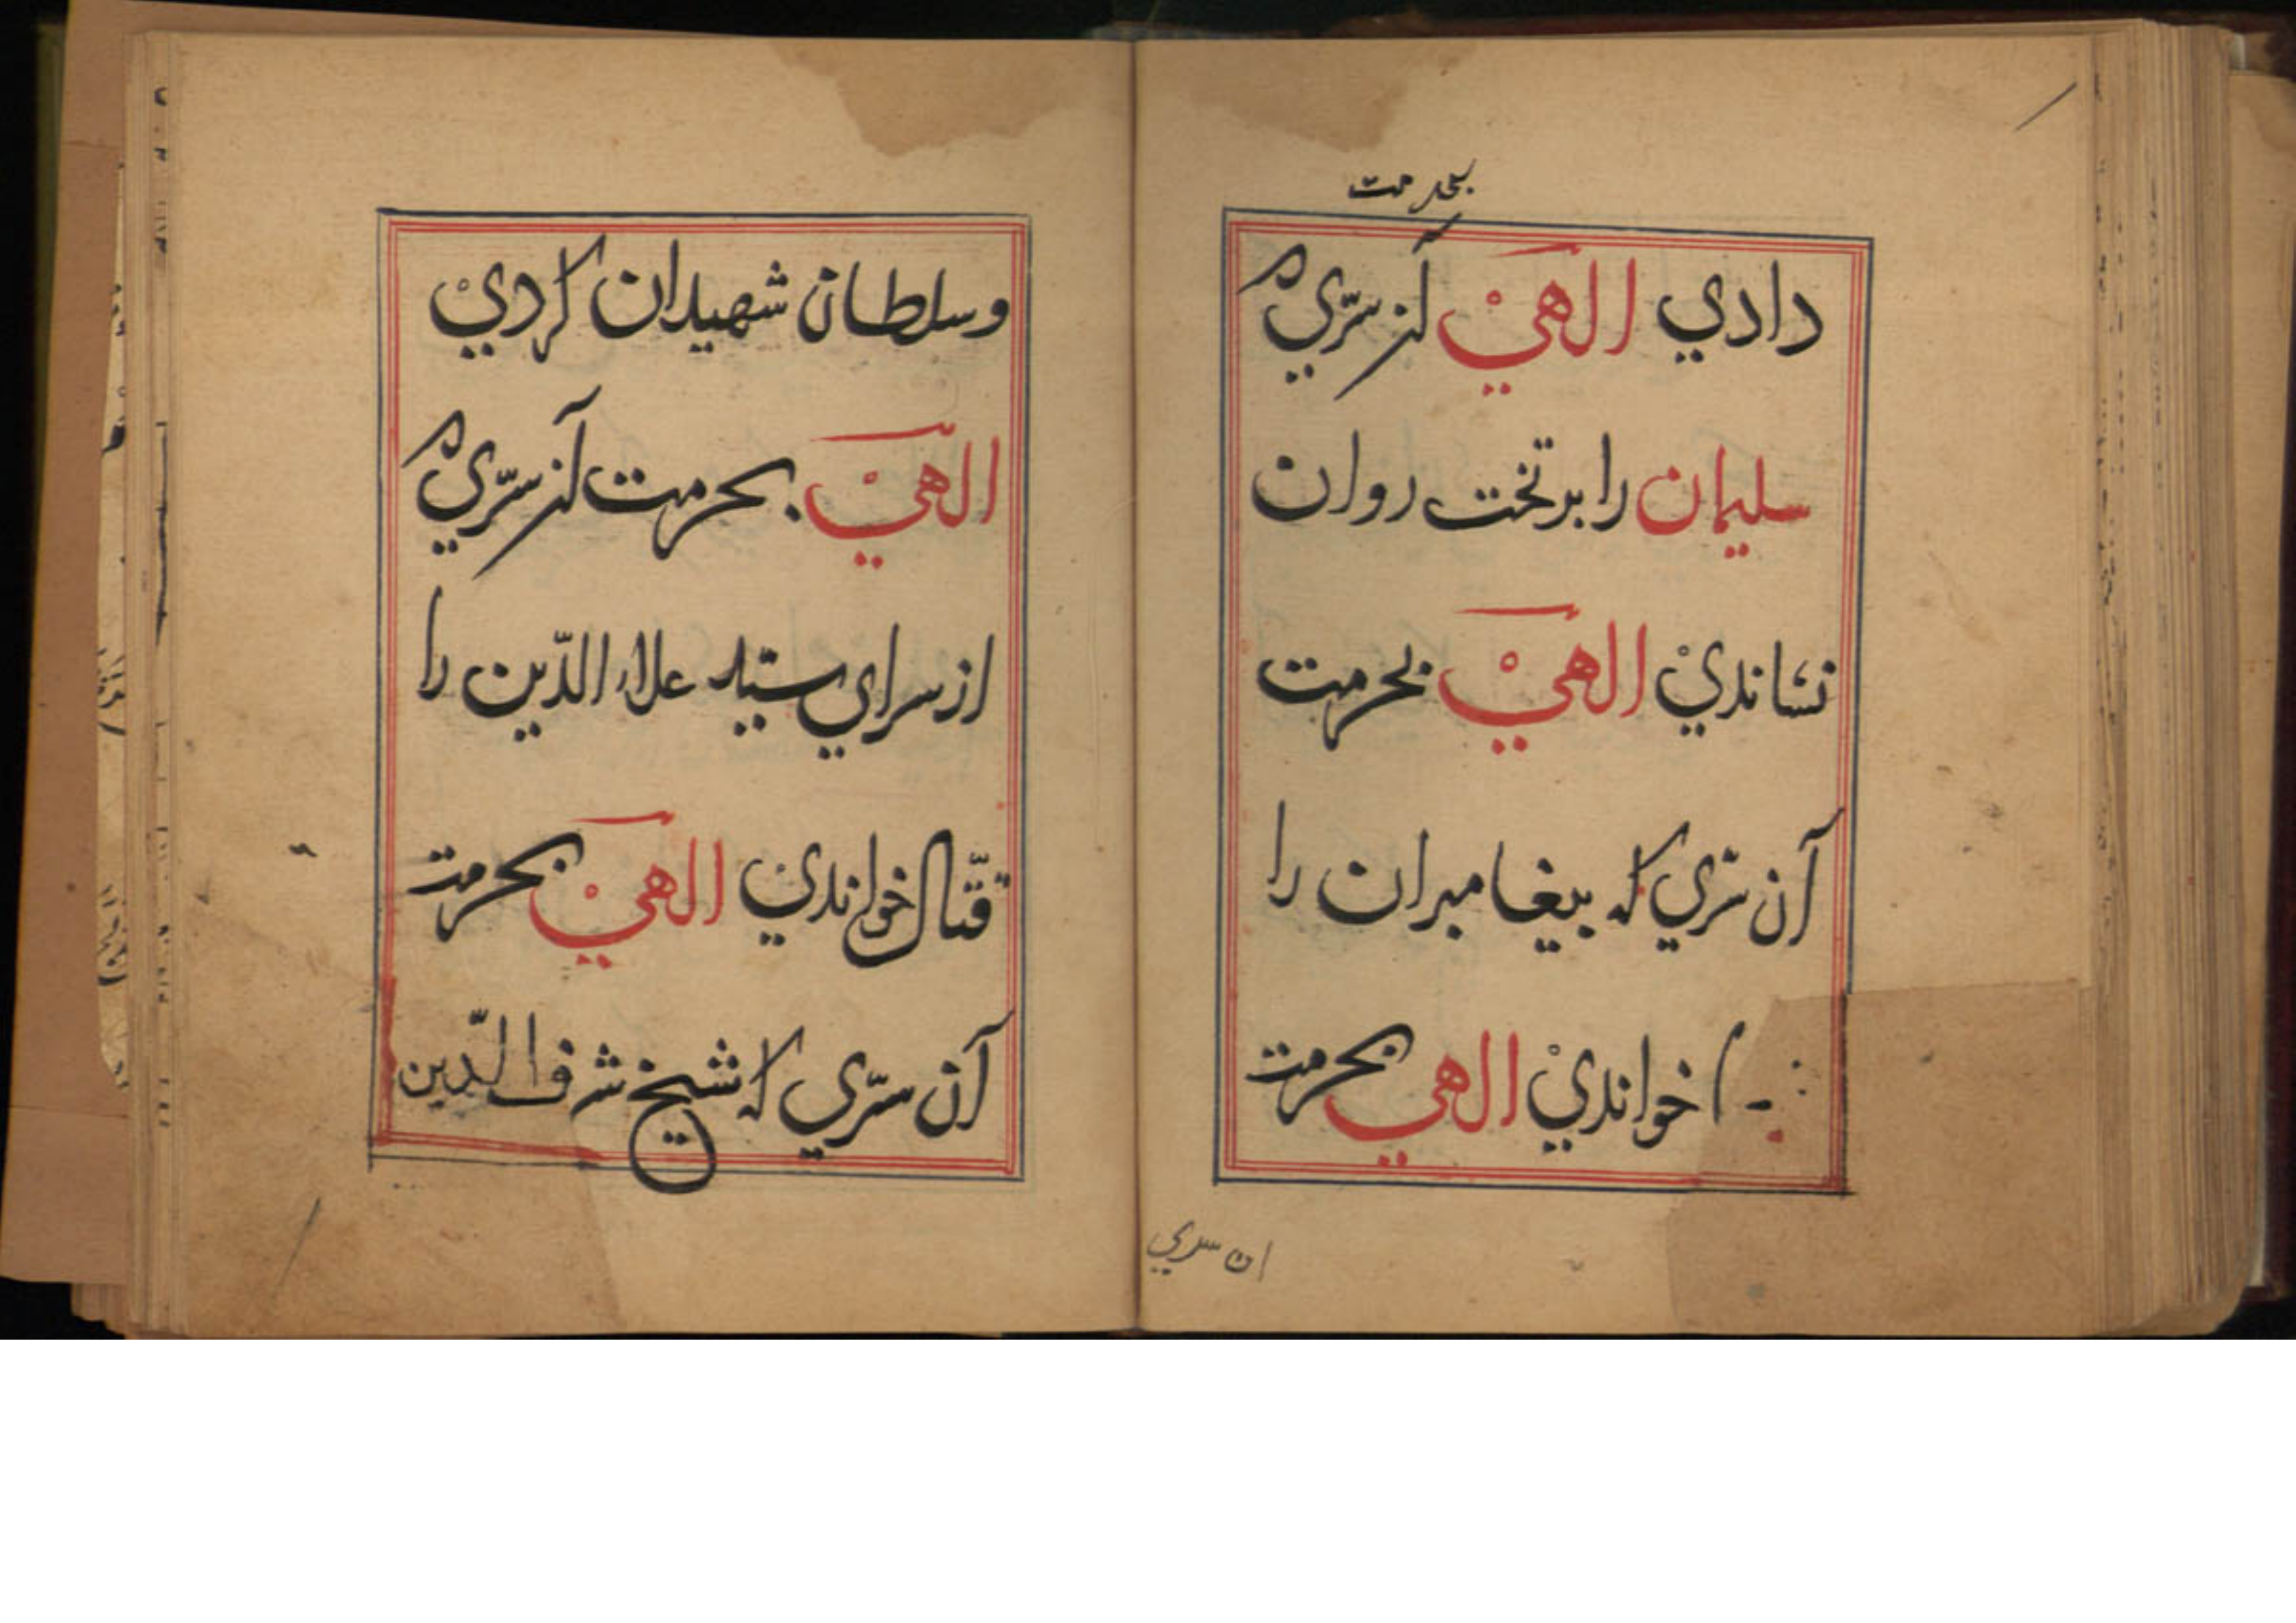 بحرمت
دادي الهيْ آنسرّيكه
سليمان را برتخت روان
نشانديْ الهيْ بحرمت
آن سرّي كه پيغامبران را
خوانديْ الهي بحرمت
ان سري
وسلطان شهيدان كرديْ
الهيْ بحرمت آنسرّيكه
ازسراي سيد علاءالدّين را
قتّال خواندي الهيْ بحرمت
آن سرّي كه شيخ شرف الدّين